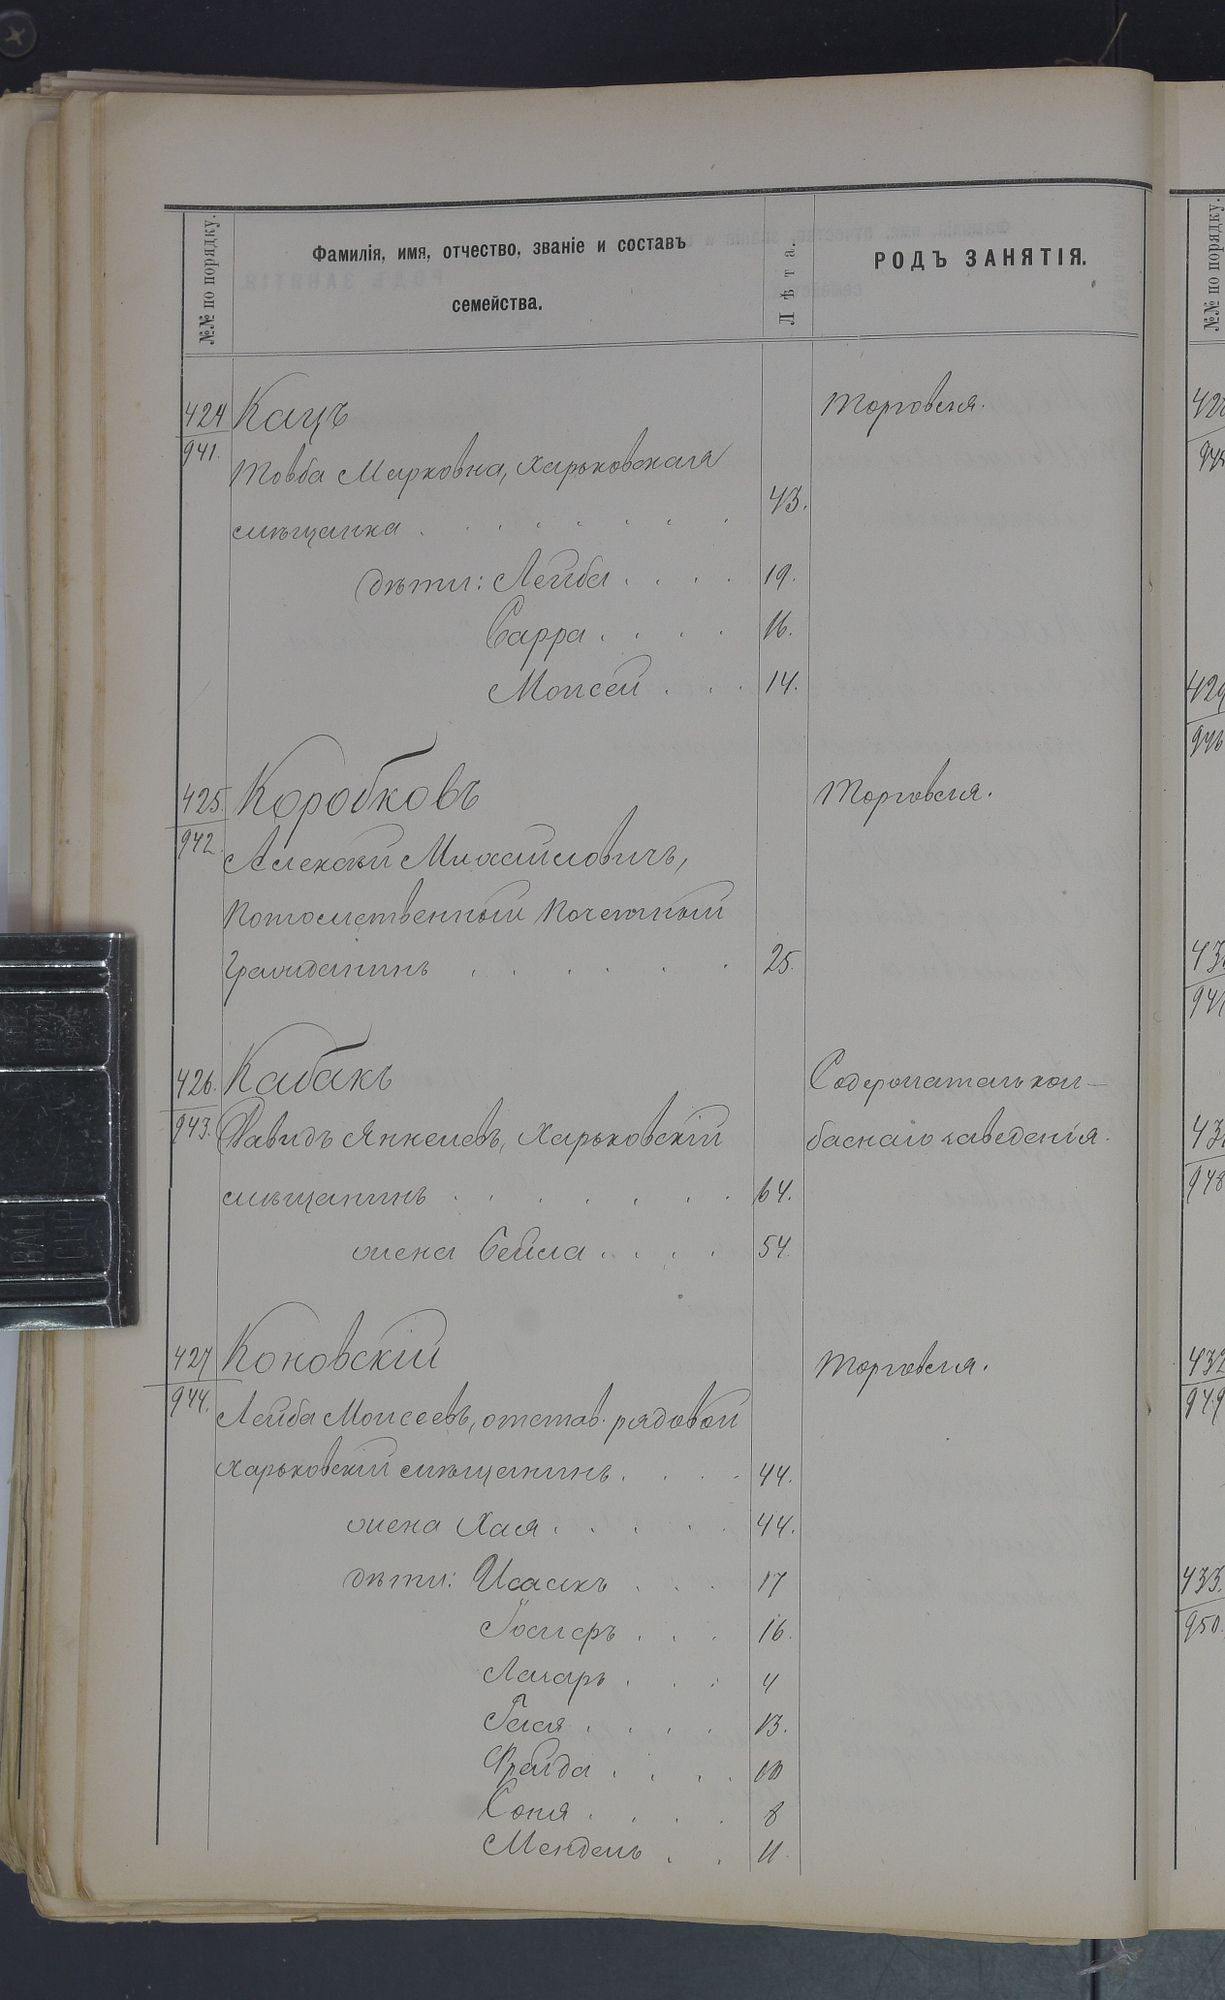 №№ по порядку.
Фамилія, имя, отчество, званіе и составъ
семейства.
Лѣта.
РОДЪ ЗАНЯТІЯ.
424 Кацъ Торговля.
941.
Товба Марковна, Харьковская
мѣщанка . . . . . . . . 43.
дѣти: Лейба . . . . 19.
Сарра . . . . 16.
Моисей . . . 14.
425. Коробковъ Торговля.
942.
Алексѣй Михайловичъ,
Потомственный Почетный
Гражданинъ . . . . . . 25.
426. Кабакъ Содержатель кол-
943. Давидъ Янкелевъ, Харьковскій баснаго заведенія.
мѣщанинъ . . . . . . . 64.
жена Бейла . . . . 54.
427 Коновскій Торговля.
944.
Лейба Моисеевъ, отстав. рядовой
Харьковскій мѣщанинъ . . . . 44.
жена Хая . . . . . 44.
дѣти: Исаакъ . . . 17
. . . 16.
Лазарь . . . 4
. . . . 13.
Фрейда . . . . 10
Соня . . . . 8
Мендель . . 11.
№№ по порядку.
429
432
949
433.
950.